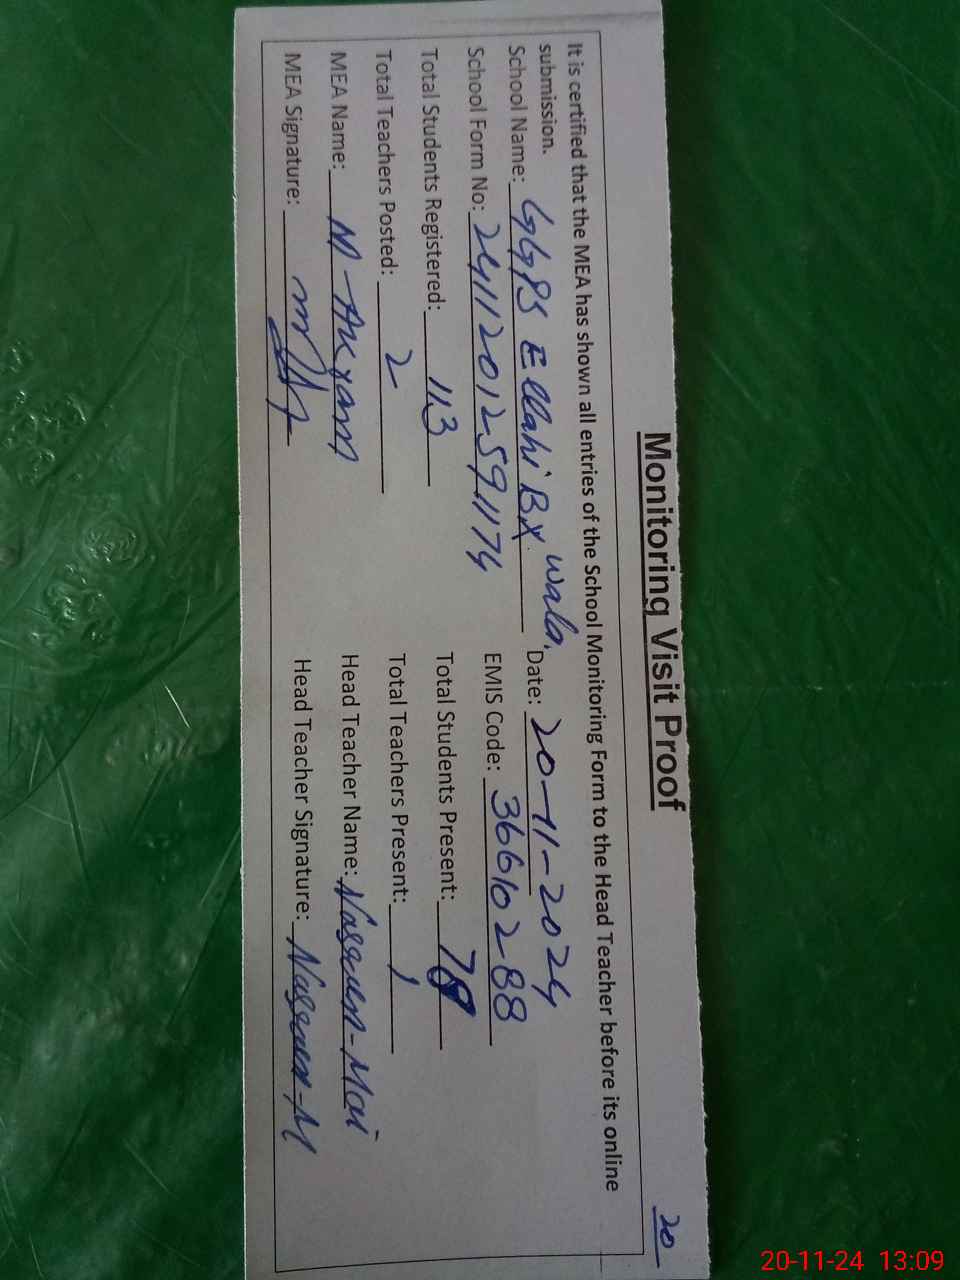 20
Monitoring Visit Proof
It is certified that the MEA has shown all entries of the School Monitoring Form to the Head Teacher before its online
submission.
School Name: GGPS Ellahi BX wala. Date: 20-11-2024
School Form No: 24112012591174 EMIS Code: 36610288
Total Students Registered: 113 Total Students Present: 78
Total Teachers Posted: 2 Total Teachers Present: 1
MEA Name: M-Akram Head Teacher Name: Naseem-Mai
MEA Signature: Head Teacher Signature: Naseem-M
20-11-24 13:09